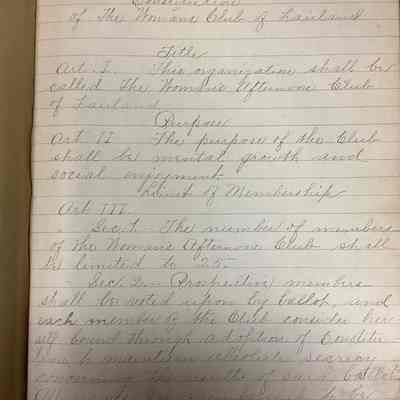 Constitution
of The Womans Club of Fairland
Title
Art I. This organization shall be
called The Woman's Afternoon Club
of Fairland.
Purpose
Art II The purpose of the Club
shall be mental growth and
social enjoyment.
Limit of Membership
Art III
Sec. 1. The number of members
of the Woman's Afternoon Club shall
be limited to 25.
Sec. 2. Prospective members
shall be voted upon by ballot, and
each member of the Club consider her
self bound through adoption of Constitu
to maintain absolute secrecy
concerning the results of such ballot